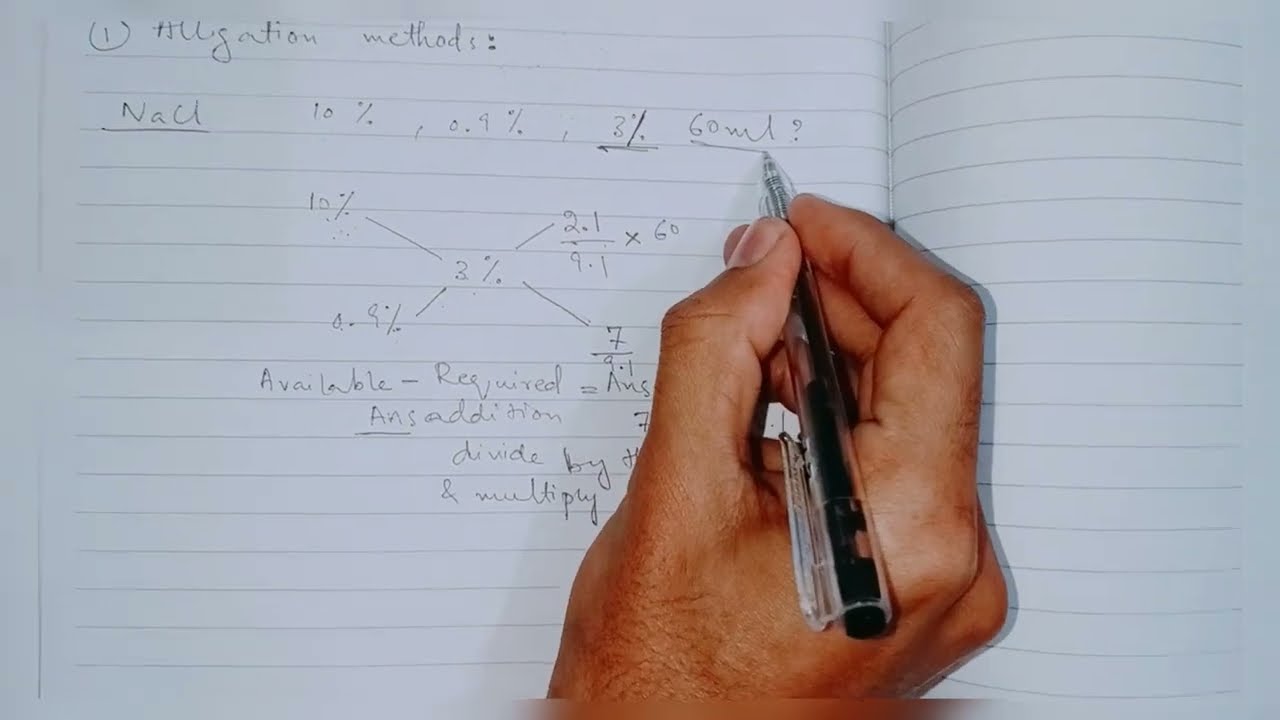 ① Alligation methods:
NaCl 10 % , 0.9 % , 3% 60ml ?
10%
2.1
9.1 × 60
3 %
0.9%
7
9.1
Available - Required = Ans
Ans addition 7
divide by
& multiply